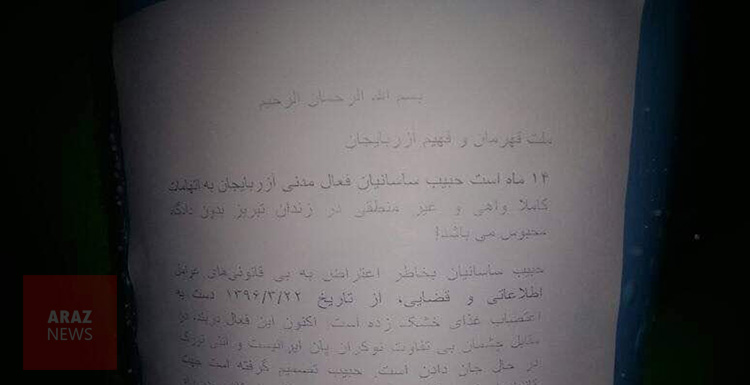 بسم الله الرحمان الرحیم
ملت قهرمان و فهیم آزربایجان
۱۴ ماه است حبیب ساسانیان فعال مدنی آزربایجان به اتهامات
کاملا واهی و غیر منطقی در زندان تبریز بدون دادگاه
محبوس می باشد!
حبیب ساسانیان بخاطر اعتراض به بی قانونی‌های عوامل
اطلاعاتی و قضایی، از تاریخ ۱۳۹۶/۳/۲۲ دست به
اعتصاب غذای خشک زده است. اکنون این فعال دربند، در
مقابل چشمان بی تفاوت نوکران پان ایرانیست و آنتی تورک
در حال جان دادن است. حبیب تصمیم گرفته است جهت
ARAZ
NEWS